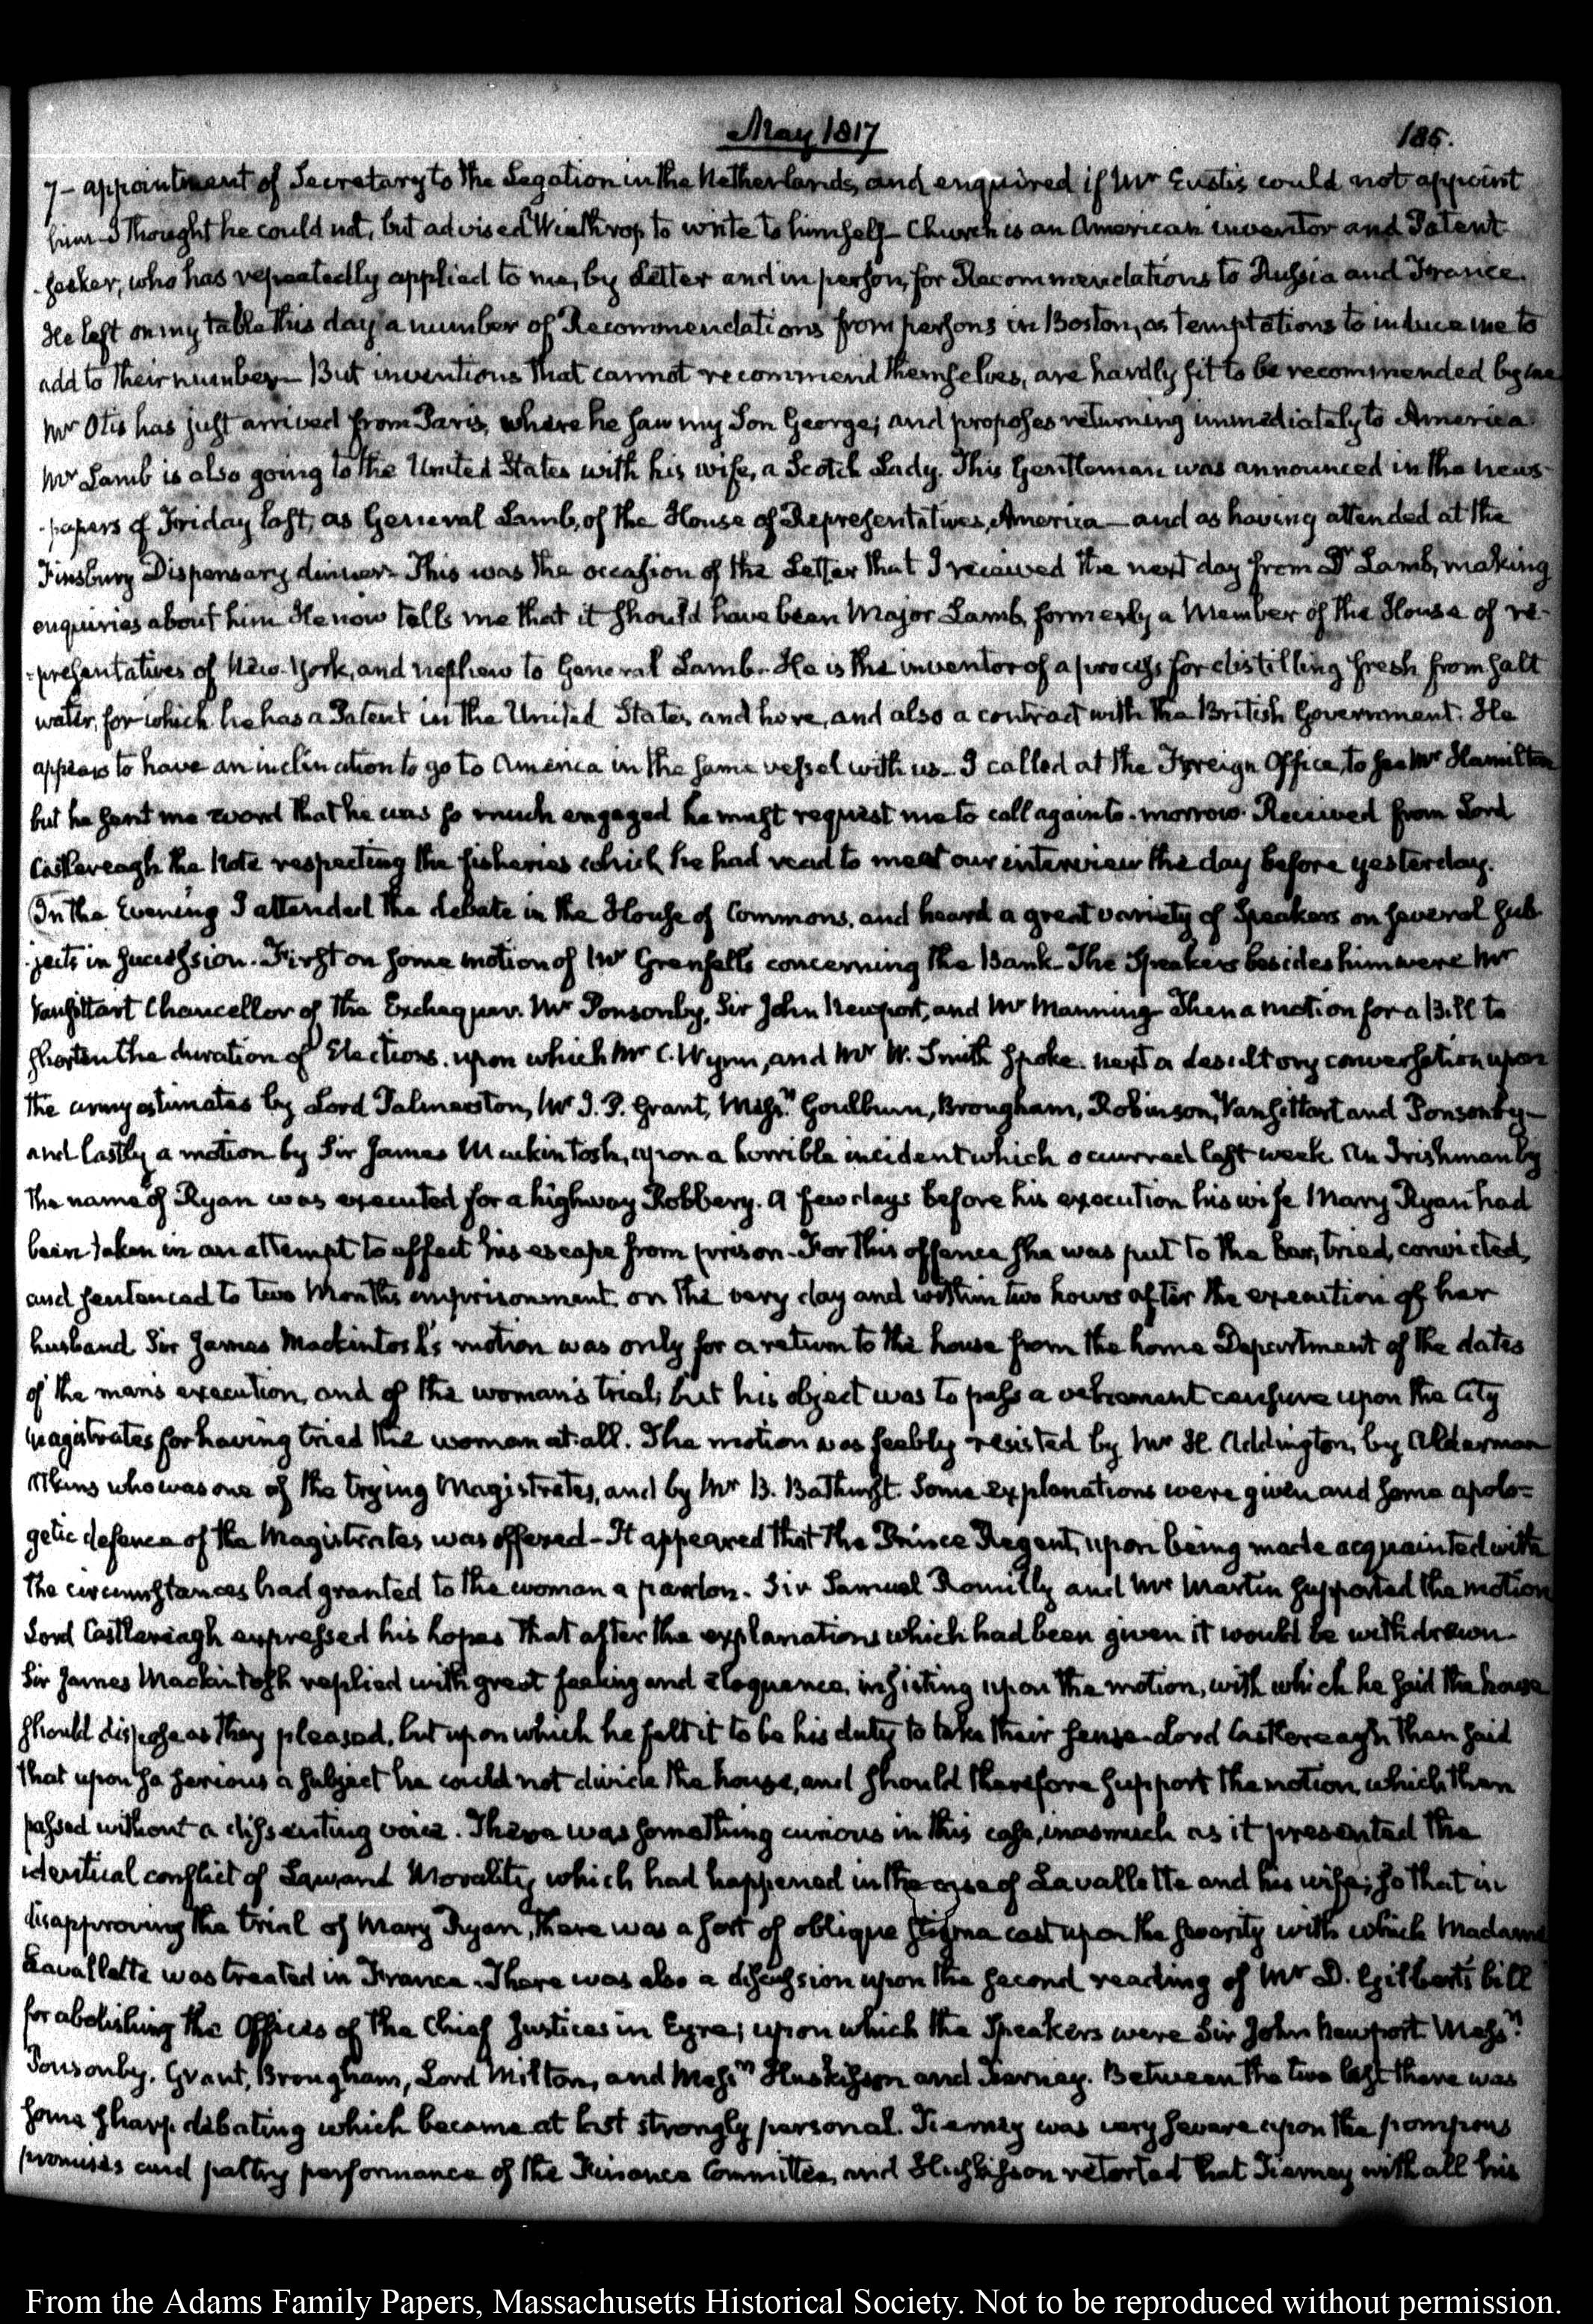 May 1817
185.
7 - appointment of Secretary to the Legation in the Netherlands, and enquired if Mr Eustis could not appoint
him - I thought he could not, but advised Winthrop to write to himself - Church is an American inventor and Patent
-seeker, who has repeatedly applied to me, by Letter and in person, for Recommendations to Russia and France.
He left on my table this day a number of Recommendations from persons in Boston, as temptations to induce me to
add to their number - But inventions that cannot recommend themselves, are hardly fit to be recommended by me
Mr Otis has just arrived from Paris, where he saw my Son George; and proposes returning immediately to America
Mr Lamb is also going to the United States with his wife, a Scotch Lady. This Gentleman was announced in the news-
-papers of Friday last, as General Lamb, of the House of Representatives, America - and as having attended at the
Finsbury Dispensary dinner - This was the occasion of the Letter that I received the next day from Dr Lamb, making
enquiries about him He now tells me that it should have been Major Lamb, formerly a Member of the House of re-
-presentatives of New-York, and nephew to General Lamb - He is the inventor of a process for distilling fresh from salt
water, for which he has a Patent in the United States, and here, and also a contract with the British Government. He
appears to have an inclination to go to America in the same vessel with us - I called at the Foreign Office, to see Mr Hamilton
but he sent me word that he was so much engaged he must request me to call again to-morrow. Received from Lord
Castlereagh the Note respecting the fisheries which he had read to me at our interview the day before yesterday.
In the Evening I attended the debate in the House of Commons, and heard a great variety of Speakers on several sub-
-jects in succession. First on some motion of Mr Grenfell's concerning the Bank - The Speakers besides him were Mr
Vansittart Chancellor of the Exchequer. Mr Ponsonby, Sir John Newport, and Mr Manning - Then a motion for a Bill to
shorten the duration of Elections. upon which Mr C. Wynn, and Mr W. Smith spoke. next a desultory conversation upon
the army estimates by Lord Palmerston, Mr J. P. Grant, Messrs Goulburn, Brougham, Robinson, Vansittart and Ponsonby -
and lastly a motion by Sir James Mackintosh, upon a horrible incident which occurred last week. An Irishman by
the name of Ryan was executed for a highway Robbery. A few days before his execution his wife Mary Ryan had
been taken in an attempt to effect his escape from prison - For this offence she was put to the bar, tried, convicted,
and sentenced to two Months imprisonment, on the very day and within two hours after the execution of her
husband. Sir James Mackintosh's motion was only for a return to the house from the home Department of the dates
of the man's execution, and of the woman's trial; but his object was to pass a vehement censure upon the City
magistrates for having tried the woman at all. The motion was feebly resisted by Mr H. Addington, by Alderman
Atkins who was one of the trying Magistrates, and by Mr B. Bathurst. Some explanations were given and some apolo=
getic defence of the Magistrates was offered - It appeared that the Prince Regent, upon being made acquainted with
the circumstances had granted to the woman a pardon. Sir Samuel Romilly and Mr Martin supported the motion
Lord Castlereagh expressed his hopes that after the explanations which had been given it would be withdrawn.
Sir James Mackintosh replied with great feeling and eloquence, insisting upon the motion, with which he said the house
should dispose as they pleased, but upon which he felt it to be his duty to take their sense - Lord Castlereagh then said
that upon so serious a subject he could not divide the house, and should therefore support the motion, which then
passed without a dissenting voice. There was something curious in this case, inasmuch as it presented the
identical conflict of Law, and Morality which had happened in the case of Lavallette and his wife; so that in
disapproving the trial of Mary Ryan, there was a sort of oblique stigma cast upon the severity with which Madame
Lavallette was treated in France. There was also a discussion upon the second reading of Mr D. Gilbert's bill
for abolishing the Offices of the Chief Justices in Eyre; upon which the Speakers were Sir John Newport. Messrs
Ponsonby, Grant, Brougham, Lord Milton, and Messrs Huskisson and Tierney. Between the two last there was
some sharp debating which became at last strongly personal. Tierney was very severe upon the pompous
promises and paltry performance of the Finance Committee, and Huskisson retorted that Tierney with all his
From the Adams Family Papers, Massachusetts Historical Society. Not to be reproduced without permission.